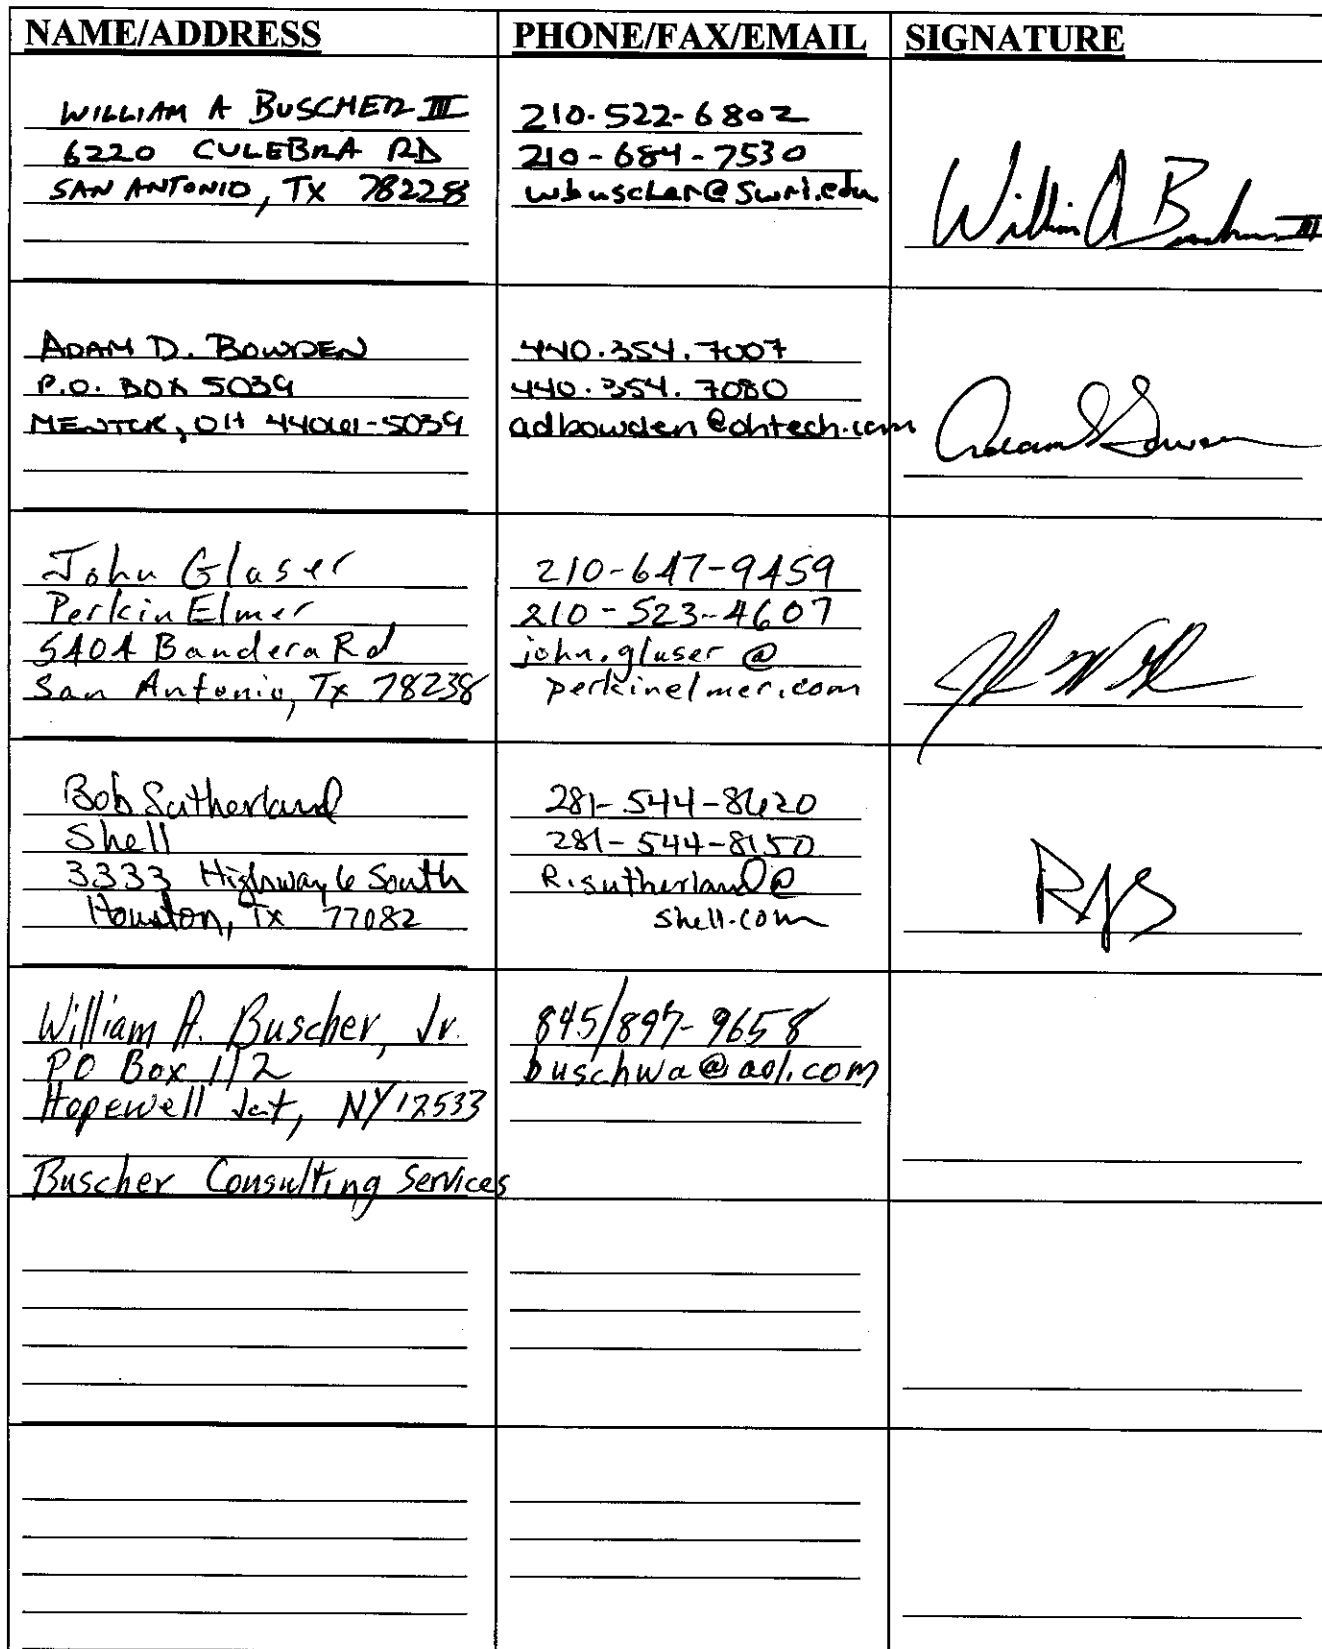 NAME/ADDRESS
PHONE/FAX/EMAIL
SIGNATURE
WILLIAM A BUSCHER III
6220 CULEBRA RD
SAN ANTONIO, TX 78228
210-522-6802
210-684-7530
wbuscher@swri.edu
William A Buscher III
ADAM D. BOWDEN
P.O. BOX 5039
MENTOR, OH 44061-5039
440.354.7007
440.354.7080
adbowden@ohtech.com
John Glaser
PerkinElmer
5404 Bandera Rd
San Antonio, Tx 78238
210-647-9459
210-523-4607
john.glaser@
perkinelmer.com
Bob Sutherland
Shell
3333 Highway 6 South
Houston, Tx 77082
281-544-8620
281-544-8150
R.sutherland@
shell.com
RJS
William A. Buscher, Jr.
PO Box 112
Hopewell Jct, NY 12533
Buscher Consulting Services
845/897-9658
buschwa@aol.com